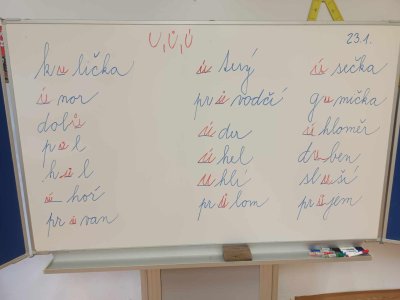 U, Ů, Ú
23.1.
kulička
únor
dolů
půl
hůl
úhoř
průvan
úterý
průvodčí
úhel
uhlí
průlom
úsečka
gumička
úhloměr
duben
sluší
průjem